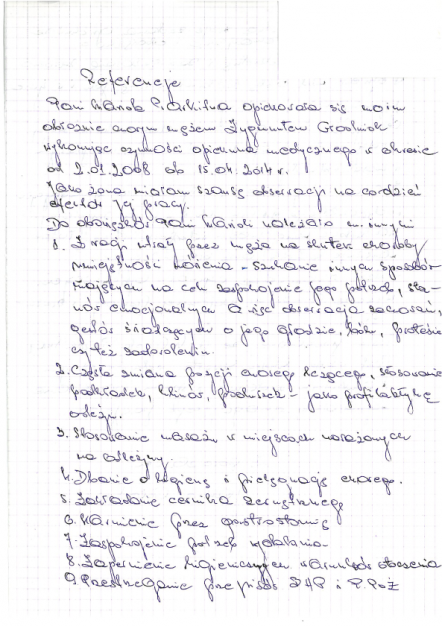 Referencje
Pani Wanda opiekowała się moim
obłożnie chorym mężem Zygmuntem
wykonując czynności opiekuna medycznego w okresie
od 2.01.2008 do 15.04.2014 r.
Jako żona miałam szansę obserwacji na co dzień
efektów jej pracy.
Do obowiązków Pani Wandy należało m. innymi
1. Z racji utraty przez męża na skutek choroby
umiejętności mówienia - szukanie innych sposobów
mających na celu zaspokojenie jego potrzeb, sta-
nów emocjonalnych a więc obserwacja zachowań,
gestów świadczących o jego głodzie, bólu, proteście
czy też zadowoleniu.
2. Częsta zmiana pozycji chorego leżącego, stosowanie
podkładek, klinów, poduszek - jako profilaktykę
odleżyn.
3. Stosowanie masaży w miejscach narażonych
na odleżyny.
4. Dbanie o higienę i pielęgnację chorego.
5. Zakładanie cewnika zewnętrznego
6. Karmienie przez gastrostomię
7. Zaspokojenie potrzeb wydalania
8. Zapewnienie higienicznych warunków otoczenia
9. Przestrzeganie przepisów BHP i P.Poż